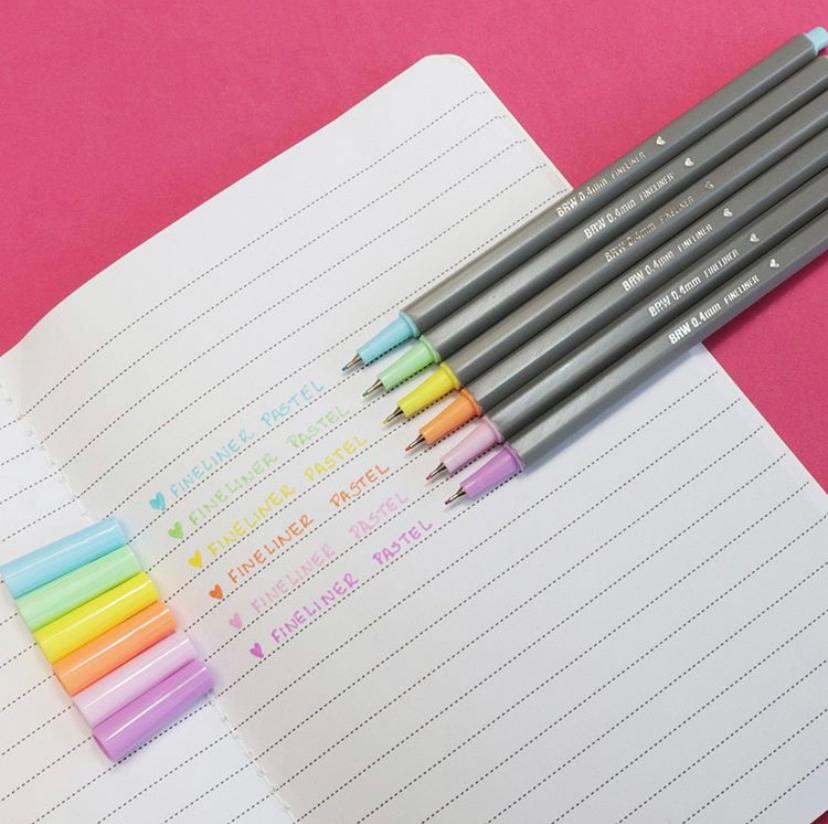 BRW 0.4mm FINELINER
BRW 0.4mm FINELINER
BRW 0.4mm FINELINER
BRW 0.4mm FINELINER
BRW 0.4mm FINELINER
BRW 0.4mm FINELINER
FINELINER PASTEL
FINELINER PASTEL
FINELINER PASTEL
FINELINER PASTEL
FINELINER PASTEL
FINELINER PASTEL